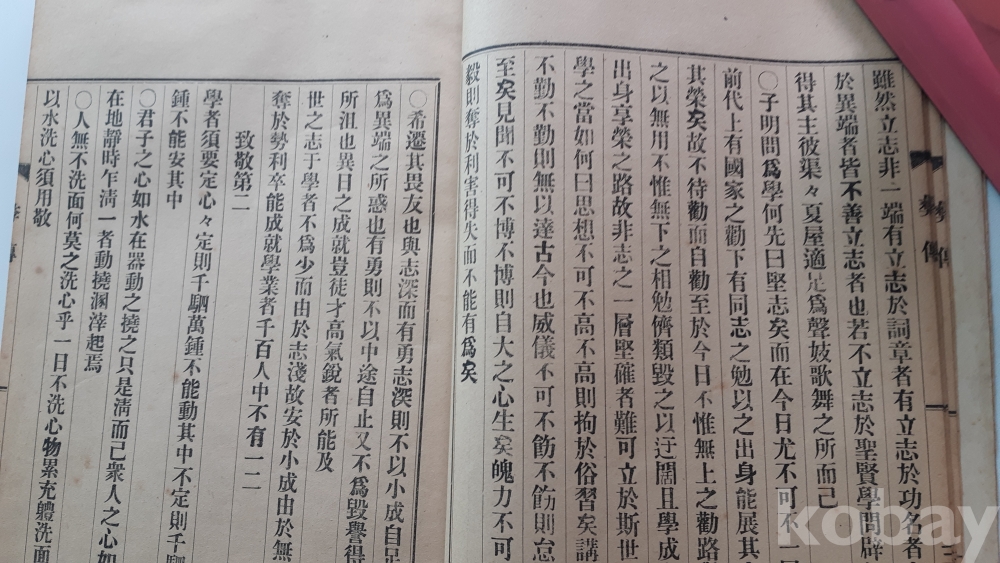 雖然立志非一端有立志於詞章者有立志於功名者
於異端者皆不善立志者也若不立志於聖賢學問辟
得其主彼渠々夏屋適足爲聲妓歌舞之所而已
○子明問爲學何先曰堅志矣而在今日尤不可不一
前代上有國家之勸下有同志之勉以之出身能展其
其榮矣故不待勸而自勸至於今日不惟無上之勸路
之以無用不惟無下之相勉儕類毁之以迂闊且學成
出身享榮之路故非志之一層堅確者難可立於斯世
學之當如何曰思想不可不高不高則拘於俗習矣講
不勤不勤則無以達古今也威儀不可不飭不飭則怠
至矣見聞不可不博不博則自大之心生矣魄力不可
毅則奪於利害得失而不能有爲矣
○希遷其畏友也與志深而有勇志深則不以小成自足
爲異端之所惑也有勇則不以中途自止又不爲毁譽得
所沮也異日之成就豈徒才高氣銳者所能及
世之志于學者不爲少而由於志淺故安於小成由於無
奪於勢利卒能成就學業者千百人中不有一二
致敬第二
學者須要定心々定則千駟萬鍾不能動其中不定則千駟
鍾不能安其中
○君子之心如水在器動之撓之只是淸而已衆人之心如
在地靜時乍淸一者動撓溷滓起焉
○人無不洗面何莫之洗心乎一日不洗心物累充軆洗面
以水洗心須用敬
kobay